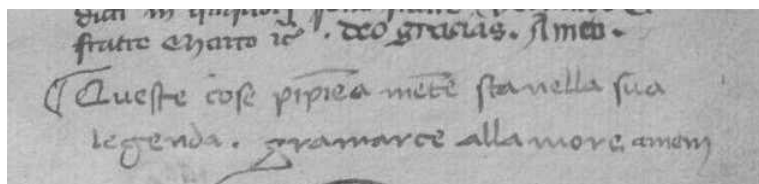 fratre Marco ic̃. Deo gracias. Amen.
Queste cose pipiẽa mẽte sta nella sua
legenda. gramarce alla more. amen